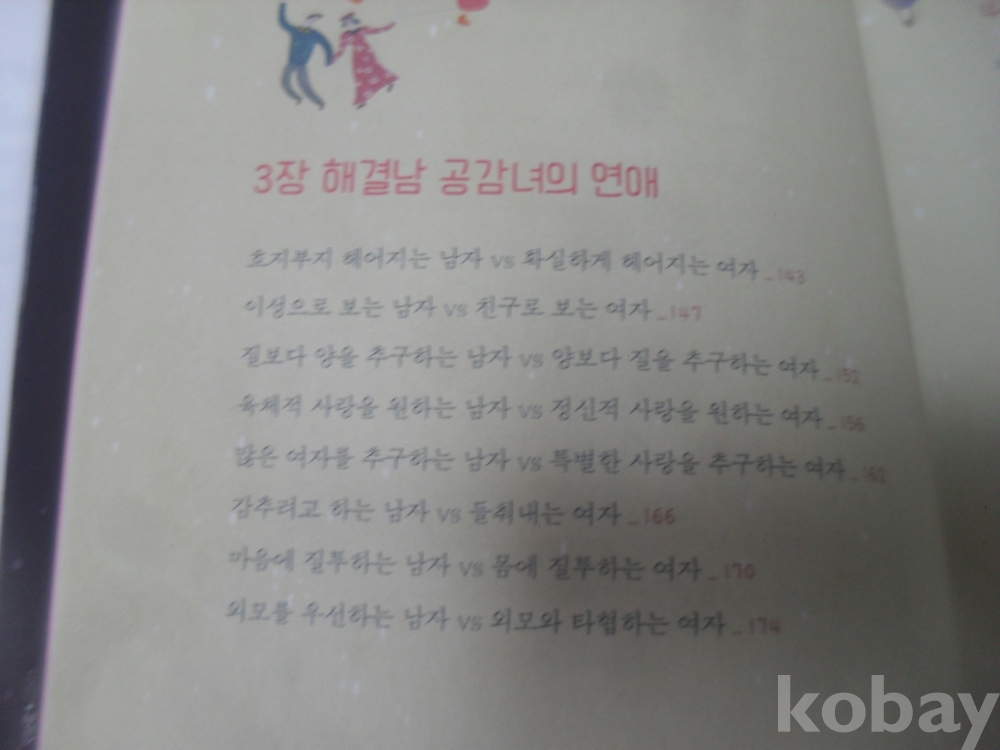 3장 해결남 공감녀의 연애
흐지부지 헤어지는 남자 vs 확실하게 헤어지는 여자 _ 143
이성으로 보는 남자 vs 친구로 보는 여자 _ 147
질보다 양을 추구하는 남자 vs 양보다 질을 추구하는 여자 _ 152
육체적 사랑을 원하는 남자 vs 정신적 사랑을 원하는 여자 _ 156
많은 여자를 추구하는 남자 vs 특별한 사랑을 추구하는 여자 _ 162
감추려고 하는 남자 vs 들춰내는 여자 _ 166
마음에 질투하는 남자 vs 몸에 질투하는 여자 _ 170
외모를 우선하는 남자 vs 외모와 타협하는 여자 _ 174
kobay